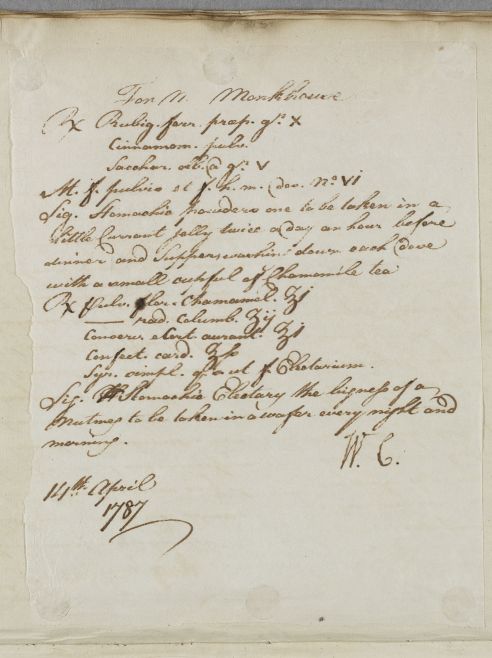 For N. Monkhouse
Rx Rubig. ferr. prap. gr. X
Cinnamom. pulv.
Sacchar. alb. a gr. V
M. f. pulvis et f. h. m. dos. No. VI
Sig. Stomachic powders one to be taken in a
little Currant Jelly twice a day an hour before
dinner and Supper washing down each dose
with a small cupful of Chamomile tea
Rx Pulv. flor. Chamamel. ʒj
—— rad. Columb. ʒij
Conserv. cort. aurant. ʒj
Confect. card. ʒſs
Syr. simpl. q. s. ut f. Electarium.
Sig. Stomachic Electary the bigness of a
Nutmeg to be taken in a wafer every night and
morning.
W. C.
14th. April
1787